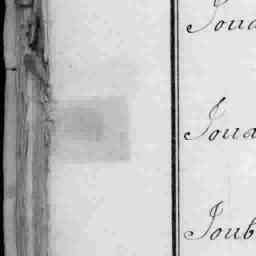 Joua
Joua
Joub